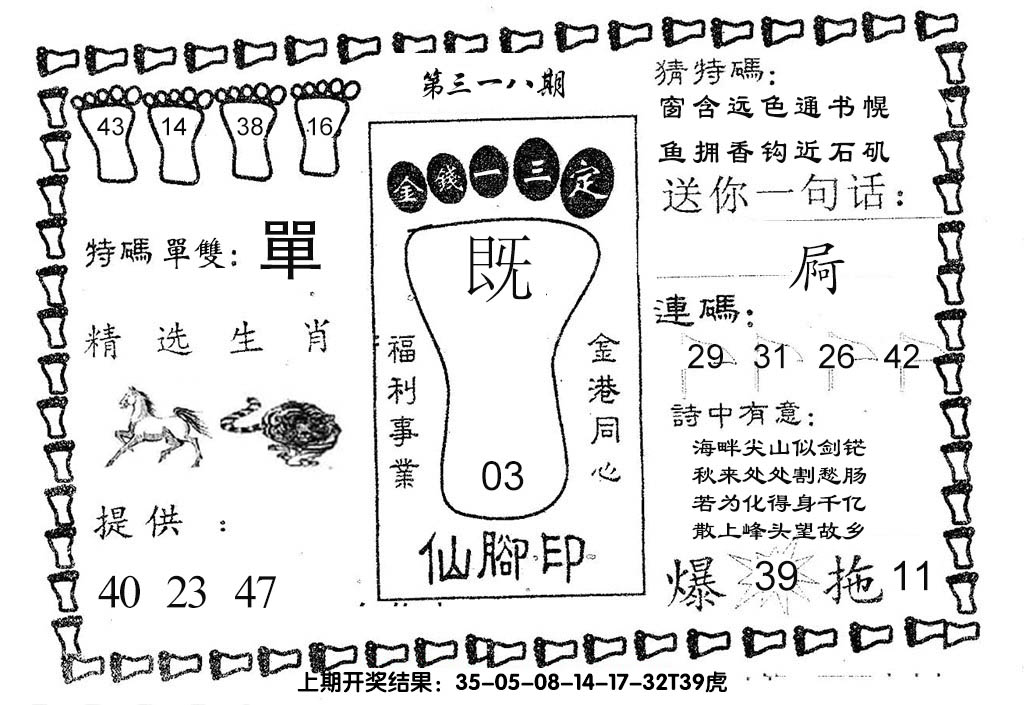 第三一八期
43 14 38 16
特碼單雙: 單
精选生肖
提供:
40 23 47
金錢一三定
既
03
福利事業
金港同心
仙腳印
猜特碼:
窗含远色通书幌
鱼拥香钩近石矶
送你一句话:
連碼:
29 31 26 42
詩中有意:
海畔尖山似剑铓
秋来处处割愁肠
若为化得身千亿
散上峰头望故乡
爆 39 拖 11
上期开奖结果：35-05-08-14-17-32T39虎